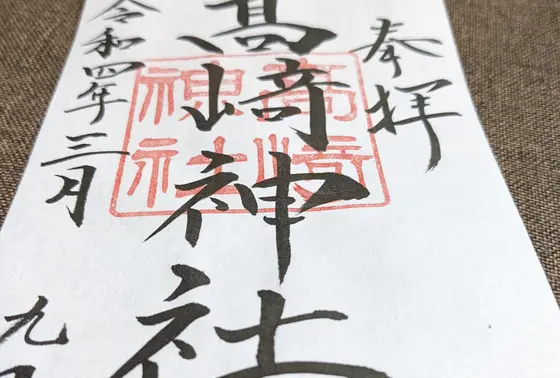 奉拝
髙﨑神社
令和四年三月九
高﨑
神社